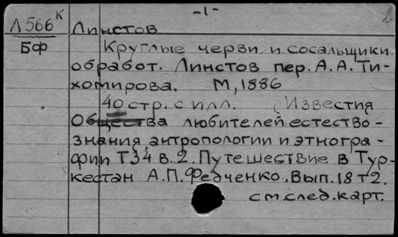 -1-
2
Л566к Линстов
БФ Круглые черви и сосальщики
обработ. Линстов пер. А.А. Ти-
хомирова. М, 1886
40 стр. с илл. (Известия
Общества любителей естество-
знания антропологии и этногра-
фии Т34 в.2. Путешествие в Тур-
кестан А.П. Федченко. Вып. 18 т2.
см след. карт.